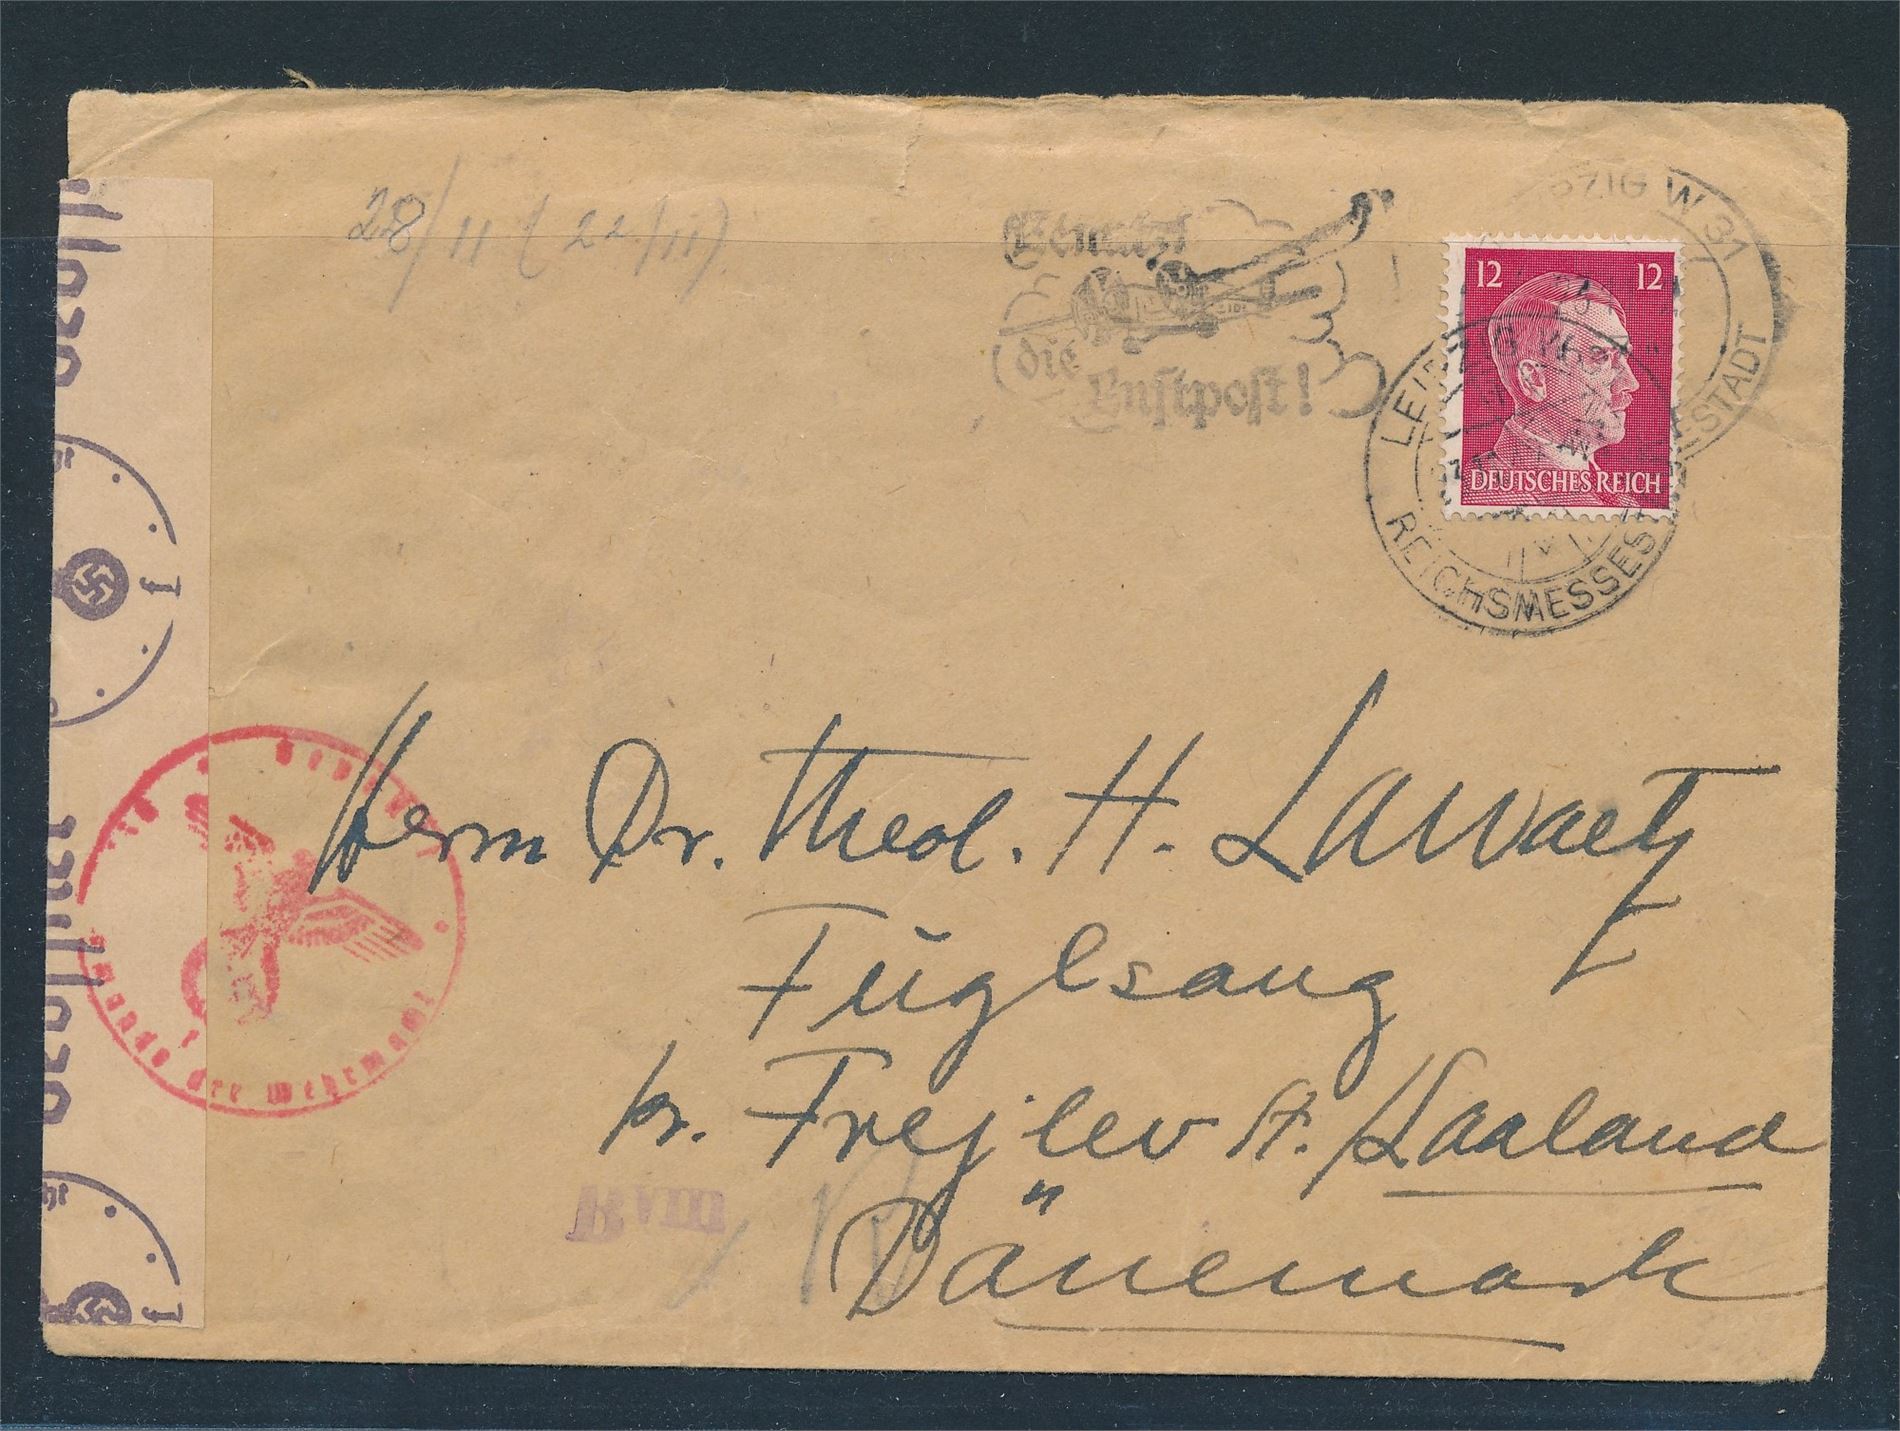 28/11 (22/11).
Benutzt
die
Luftpost!
LEIPZIG W 31
REICHSMESSESTADT
12 12
DEUTSCHES REICH
LEIPZIG
REICHSMESSES
Geöffnet
Geöffnet
der Wehrmacht
Herrn Dr. Theol. H. Lawaetz
Fuglsang
pr. Frejlev St. Laaland
Dänemark